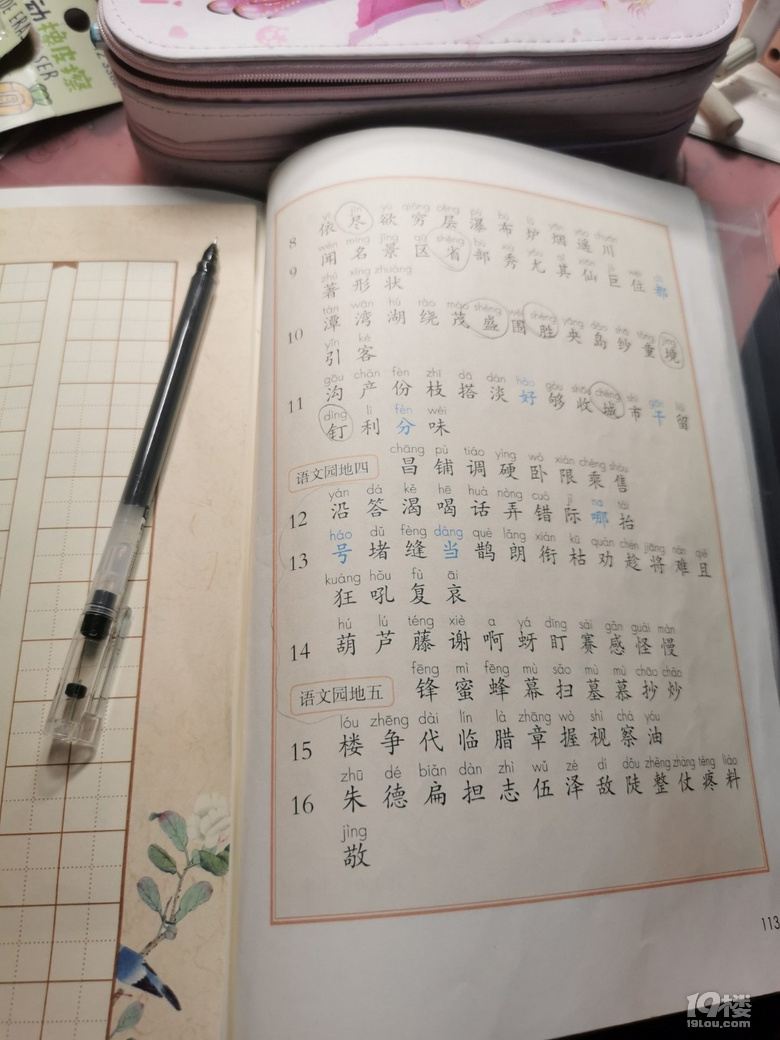 动橡皮擦
ERASER
yī jìn yù qióng céng pù bù lú yān yáo chuān
8 依 尽 欲 穷 层 瀑 布 炉 烟 遥 川
wén míng jǐng qū shěng bù xiù yóu qí xiān jù wèi dū
9 闻 名 景 区 省 部 秀 尤 其 仙 巨 位 都
zhù xíng zhuàng
著 形 状
tán wān hú rào mào shèng wéi shèng yāng dǎo shā tóng jìng
10 潭 湾 湖 绕 茂 盛 围 胜 央 岛 纱 童 境
yǐn kè
引 客
gōu chǎn fèn zhī dā dàn hào gòu shōu chéng shì gān liú
11 沟 产 份 枝 搭 淡 好 够 收 城 市 干 留
dīng lì fèn wèi
钉 利 分 味
chāng pù tiáo yìng wò xiàn chéng shòu
语文园地四 昌 铺 调 硬 卧 限 乘 售
yán dá kě hē huà nòng cuò jì na tái
12 沿 答 渴 喝 话 弄 错 际 哪 抬
háo dǔ fèng dàng què lǎng xián kū quàn chèn jiāng nán qiě
13 号 堵 缝 当 鹊 朗 衔 枯 劝 趁 将 难 且
kuáng hǒu fù āi
狂 吼 复 哀
hú lú téng xiè a yá dīng sài gǎn guài màn
14 葫 芦 藤 谢 啊 蚜 盯 赛 感 怪 慢
fēng mì fēng mù sǎo mù mù chāo chǎo
语文园地五 锋 蜜 蜂 幕 扫 墓 慕 抄 炒
lóu zhēng dài lín là zhāng wò shì chá yóu
15 楼 争 代 临 腊 章 握 视 察 油
zhū dé biǎn dàn zhì wǔ zé dí dǒu zhěng zhàng téng liào
16 朱 德 扁 担 志 伍 泽 敌 陡 整 仗 疼 料
jìng
敬
113
19楼
19lou.com